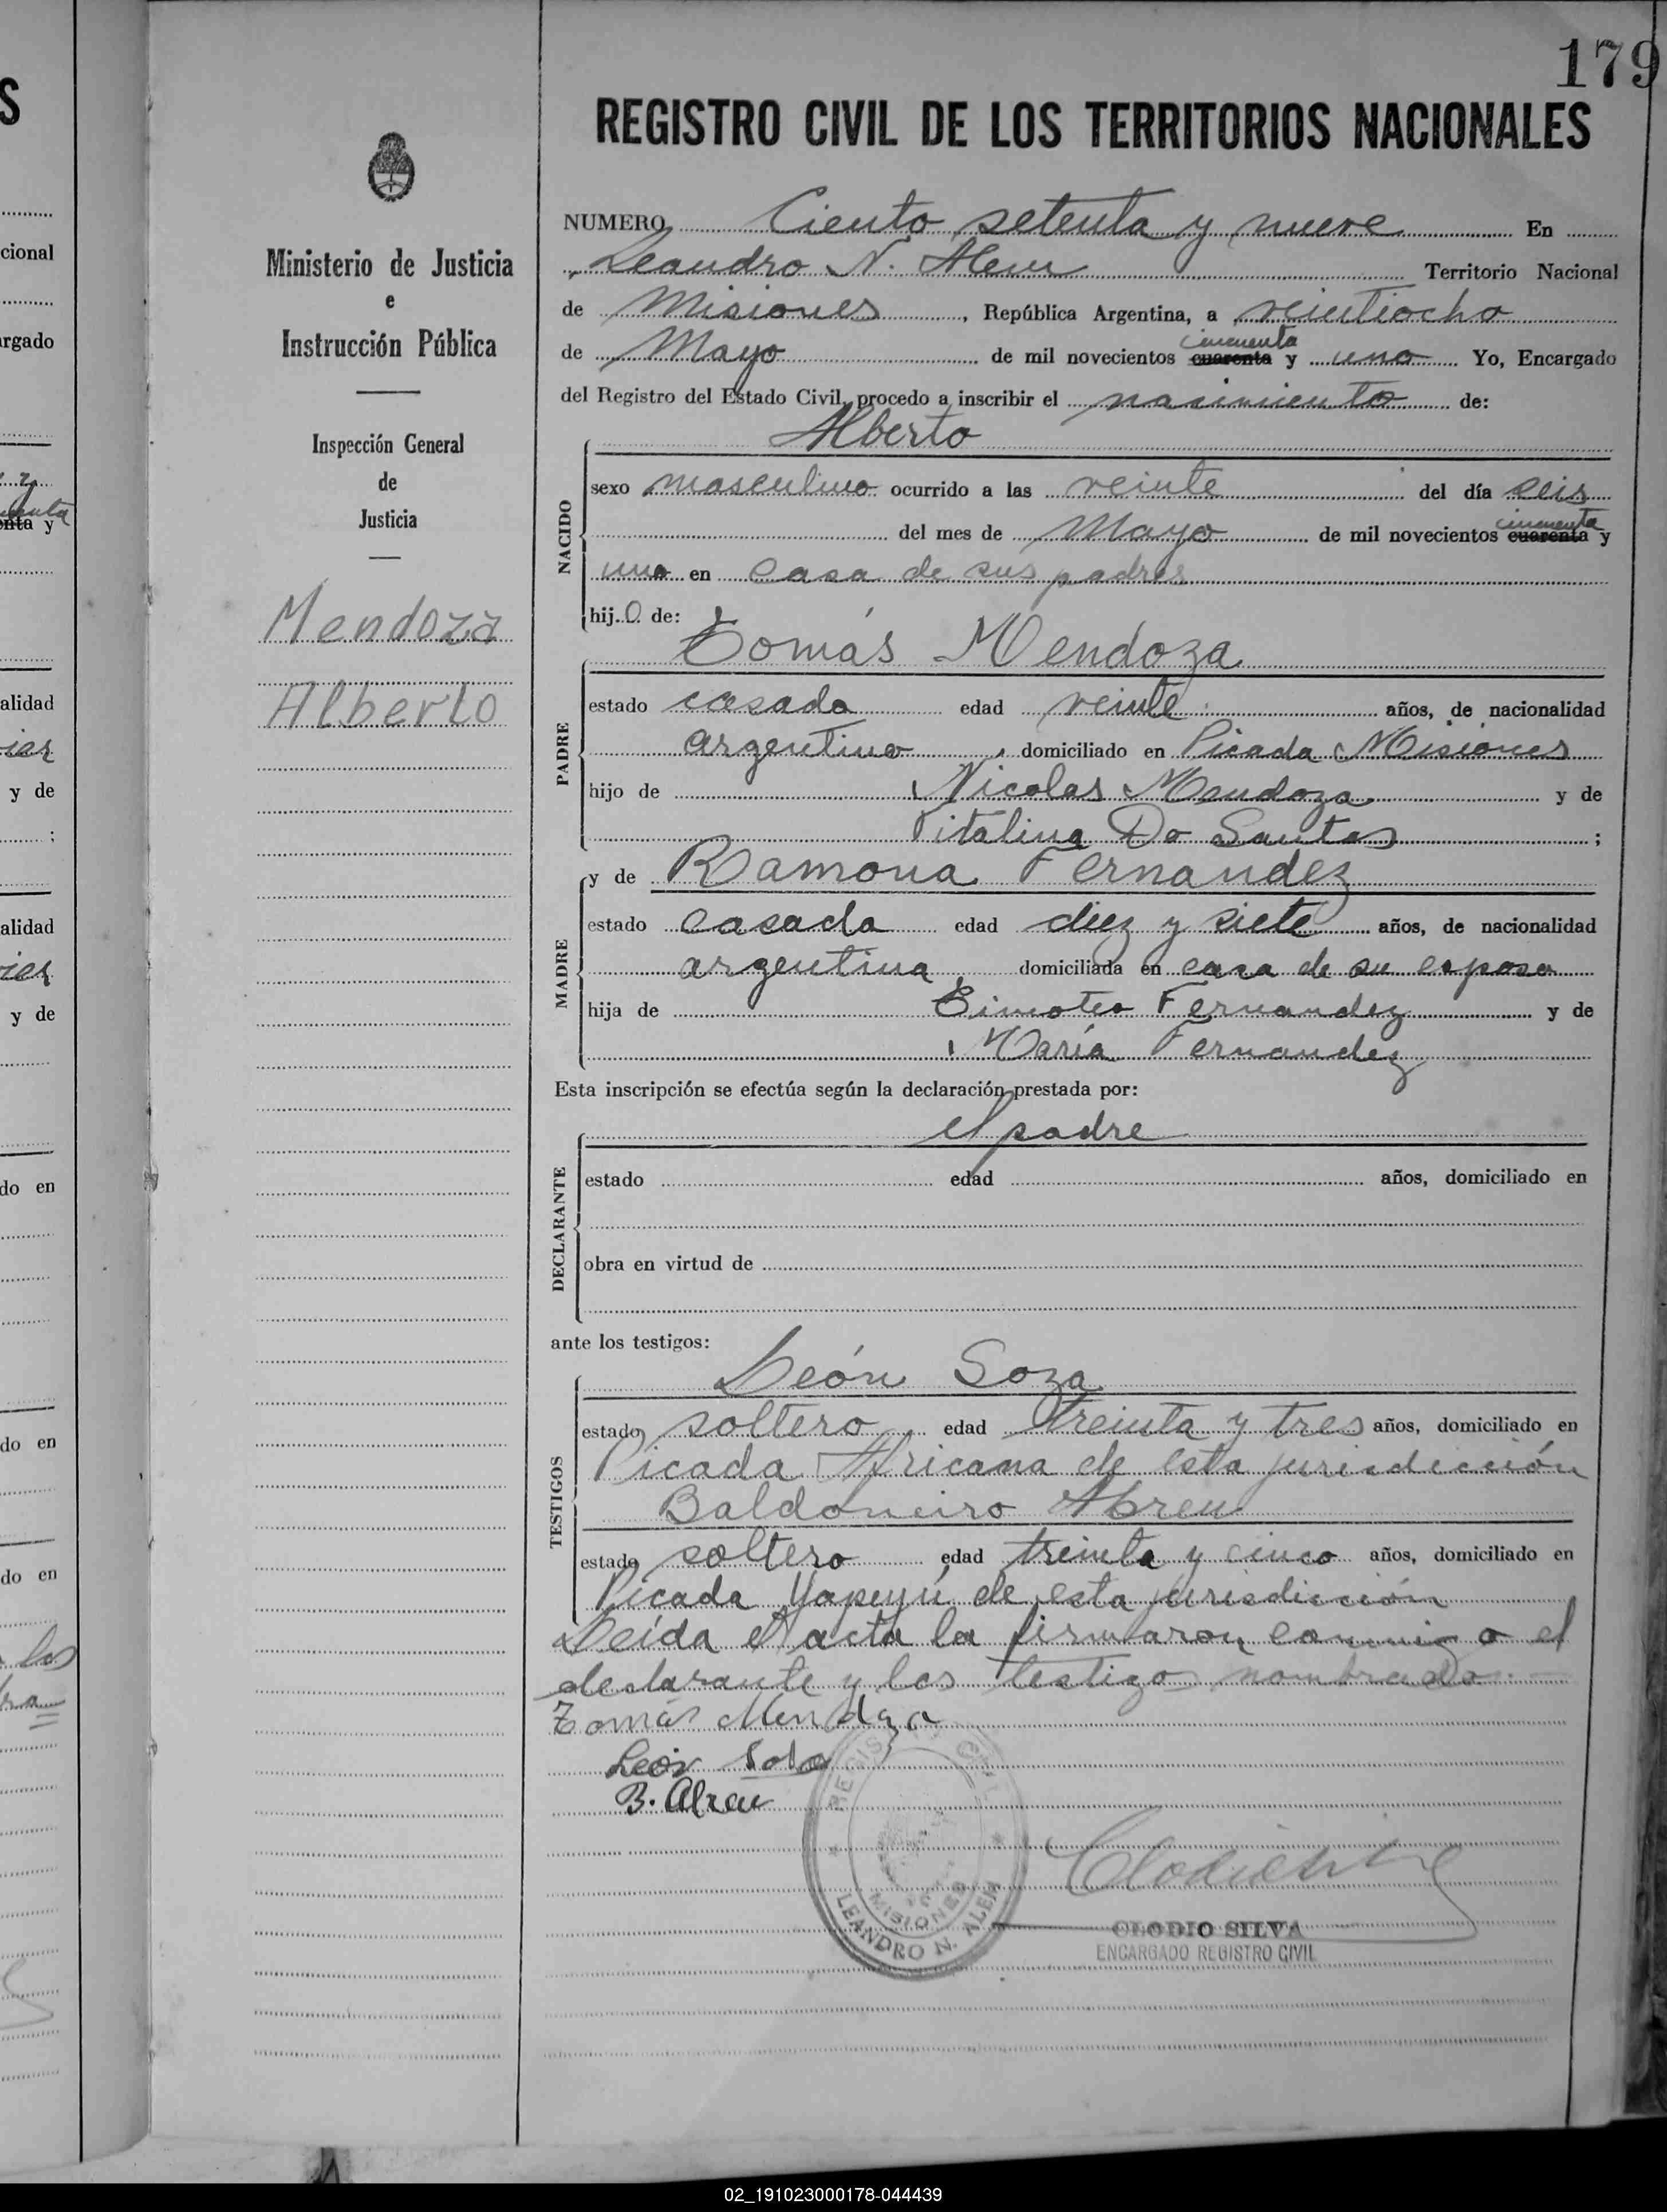 179
REGISTRO CIVIL DE LOS TERRITORIOS NACIONALES
Ministerio de Justicia
e
Instrucción Pública
Inspección General
de
Justicia
Mendoza
Alberto
NUMERO Ciento setenta y nueve En
Leandro N. Alem Territorio Nacional
de Misiones, República Argentina, a veintiocho
cincuenta
de Mayo de mil novecientos cuarenta y uno Yo, Encargado
del Registro del Estado Civil, procedo a inscribir el nacimiento de:
Alberto
NACIDO
sexo masculino ocurrido a las veinte del día seis
cincuenta
del mes de Mayo de mil novecientos cuarenta y
uno en casa de sus padres
hij.o de:
Tomás Mendoza
PADRE
estado casado edad veinte años, de nacionalidad
argentino, domiciliado en Picada Misiones
hijo de Nicolas Mendoza y de
Vitalina Do Santos ;
y de Ramona Fernandez
MADRE
estado casada edad diez y siete años, de nacionalidad
argentina, domiciliada en casa de su esposo
hija de Timoteo Fernandez y de
María Fernandez
Esta inscripción se efectúa según la declaración prestada por:
el padre
DECLARANTE
estado edad años, domiciliado en
obra en virtud de
ante los testigos:
León Soza
TESTIGOS
estado soltero edad treinta y tres años, domiciliado en
Picada Africana de esta jurisdicción
Baldomeiro Abreu
estado soltero edad treinta y cinco años, domiciliado en
Picada Yapeyú de esta jurisdicción
Leída el acta la firmaron conmigo el
declarante y los testigo nombrado
Tomás Mendoza
León
B. Abreu
REGISTRO CIVIL
MISIONES
LEANDRO N. ALEM
CLODIO SILVA
ENCARGADO REGISTRO CIVIL
S
cional
rgado
y
enta y
alidad
y de
;
alidad
y de
do en
do en
do en
los
02_191023000178-044439